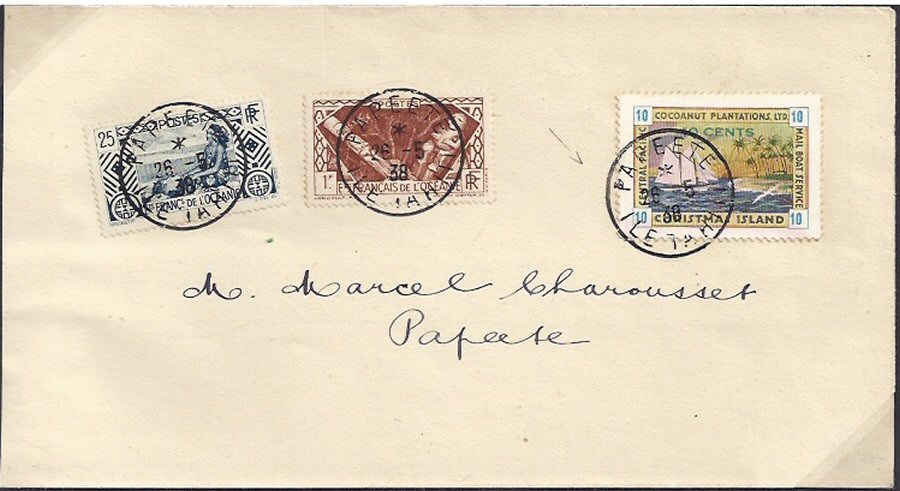 25 POSTES RF
ETS FRANÇS DE L'OCÉANIE
PAPEETE
*
26 -5
38
ILE TAHITI
POSTES
1F
ETS FRANÇAIS DE L'OCÉANIE
RF
PAPEETE
*
26 -5
38
ILE TAHITI
10 COCOANUT PLANTATIONS, LTD. 10
10 CENTS
CENTRAL PACIFIC
MAIL BOAT SERVICE
10 CHRISTMAS ISLAND 10
PAPEETE
*
26 -5
38
ILE TAHITI
M. Marcel Charousset
Papeete